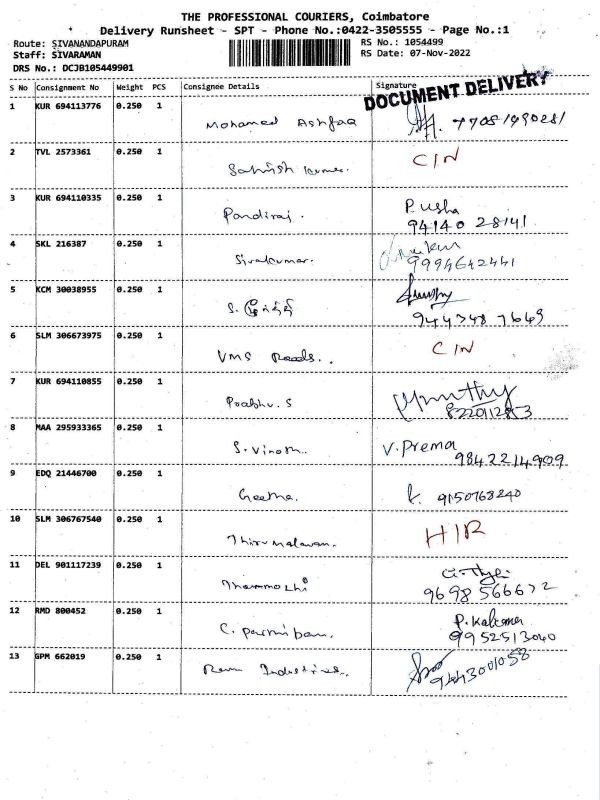 THE PROFESSIONAL COURIERS, Coimbatore
Delivery Runsheet - SPT - Phone No.:0422-3505555 - Page No.:1
Route: SIVANANDAPURAM RS No.: 1054499
Staff: SIVARAMAN RS Date: 07-Nov-2022
DRS No.: DCJB105449901
S No Consignment No Weight PCS Consignee Details Signature
DOCUMENT DELIVERY
1 KUR 694113776 0.250 1
Mohamed Ashfaq
2 TVL 2573361 0.250 1 CIN
Sathish Kumar.
3 KUR 694110335 0.250 1 P. Usha
Pandiraj. 94140 28141
4 SKL 216387 0.250 1
Sivakumar. 9994642441
5 KCM 30038955 0.250 1
S.
6 SLM 306673975 0.250 1 CIN
VMS Roads..
7 KUR 694110855 0.250 1
Prabhu. S
8 MAA 295933365 0.250 1 V. Prema
S. Vinoth. 98422 14909
9 EDQ 21446700 0.250 1
Geetha. 9150763240
10 SLM 306767540 0.250 1 HIR
Thirumalavan.
11 DEL 901117239 0.250 1
96 98 566672
12 RMD 800452 0.250 1
9952513040
13 GPM 662019 0.250 1
Industries.. 9443001058